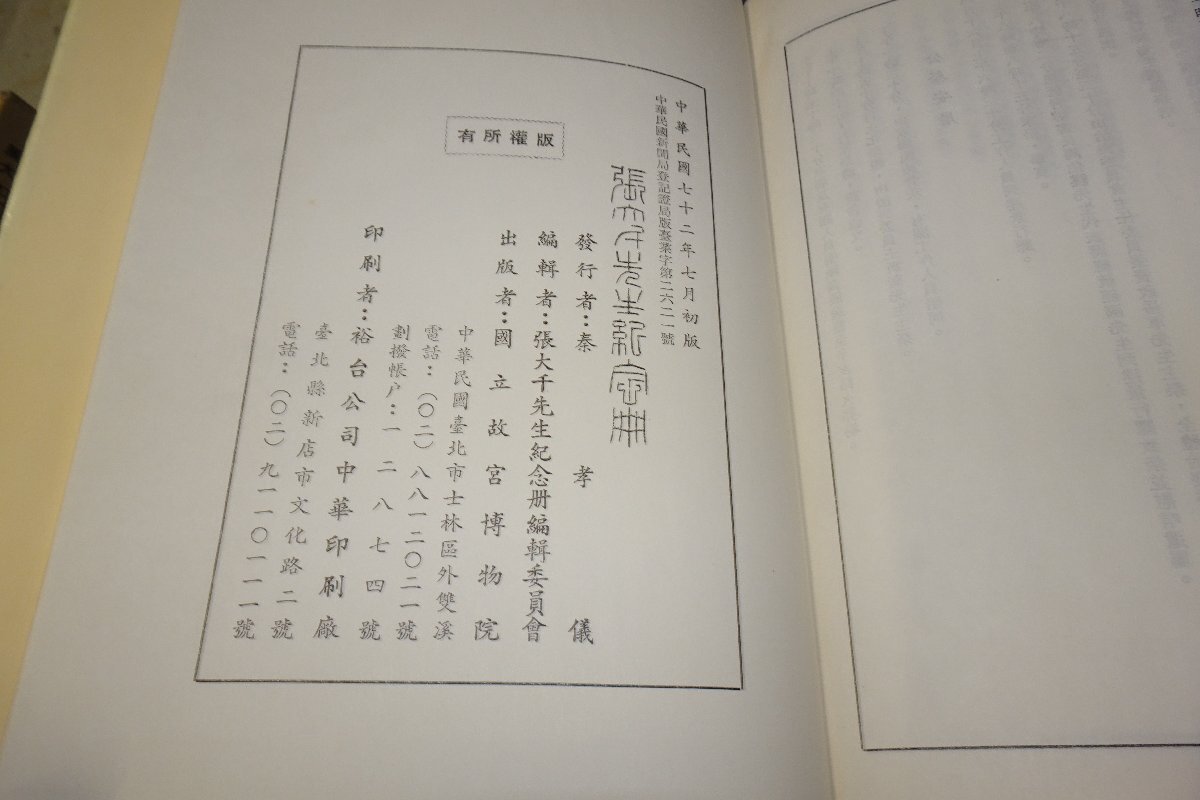 中華民國七十二年七月初版
中華民國新聞局登記證局版臺業字第二六二一號
張大千先生紀念冊
發行者：秦孝儀
編輯者：張大千先生紀念册編輯委員會
出版者：國立故宮博物院
中華民國臺北市士林區外雙溪
電話：（〇二）八八一二〇二一號
劃撥帳户：一二八七四號
印刷者：裕台公司中華印刷廠
臺北縣新店市文化路二號
電話：（〇二）九一一〇一一一號
版權所有